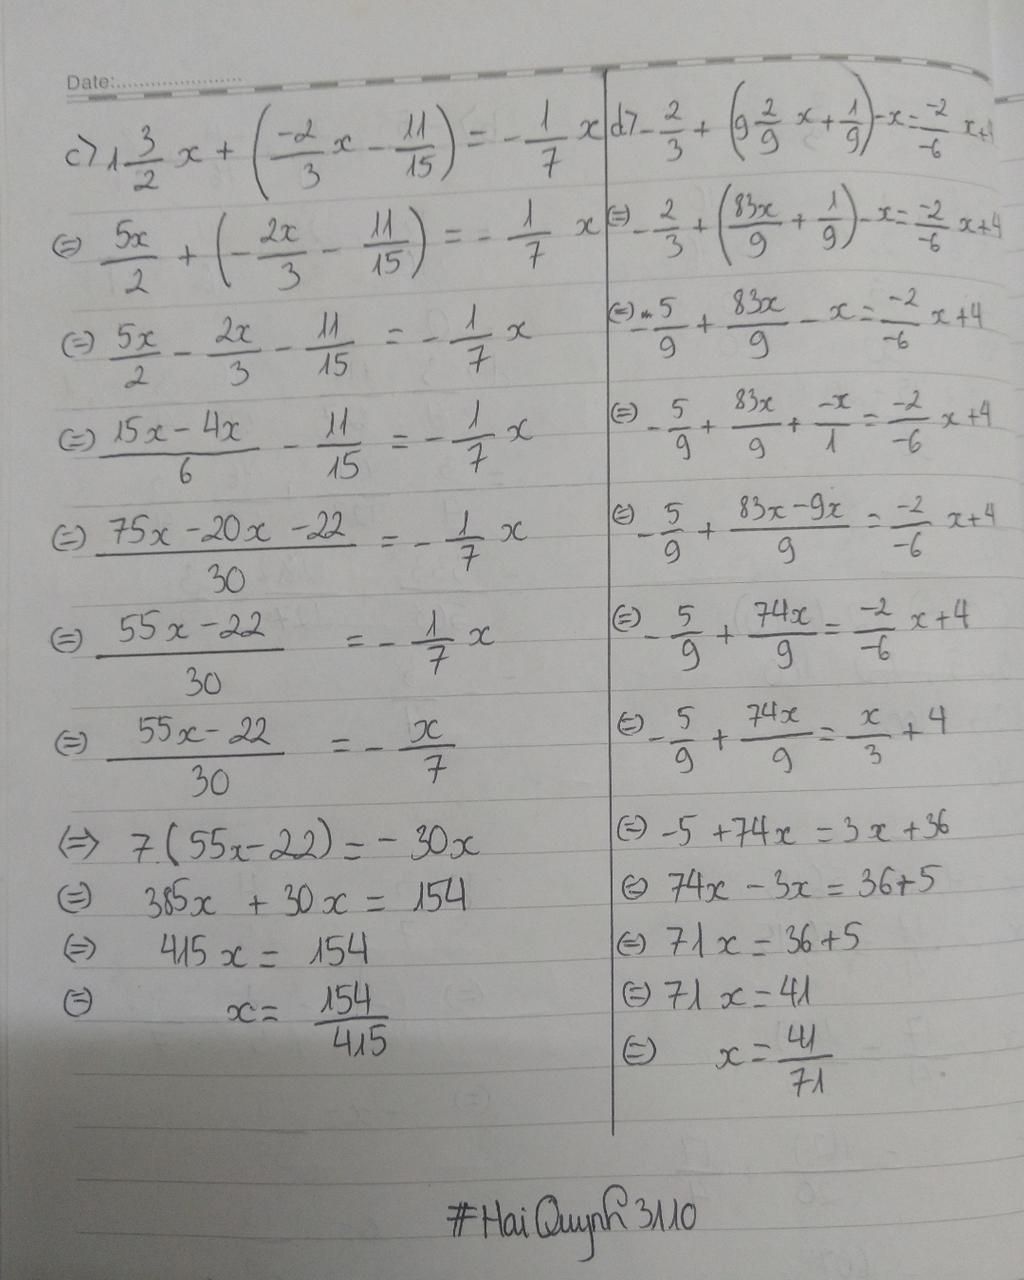 Date:......................
c) 1 3/2 x + (-2/3 x - 11/15) = - 1/7 x
⇔ 5x/2 + (- 2x/3 - 11/15) = - 1/7 x
⇔ 5x/2 - 2x/3 - 11/15 = - 1/7 x
⇔ (15x - 4x)/6 - 11/15 = - 1/7 x
⇔ (75x - 20x - 22)/30 = - 1/7 x
⇔ (55x - 22)/30 = - 1/7 x
⇔ (55x - 22)/30 = - x/7
⇔ 7.(55x - 22) = - 30x
⇔ 385x + 30x = 154
⇔ 415x = 154
⇔ x = 154/415
d) - 2/3 + (9 2/9 x + 1/9) - x = -2/-6 x + 4
⇔ - 2/3 + (83x/9 + 1/9) - x = -2/-6 x + 4
⇔ - 5/9 + 83x/9 - x = -2/-6 x + 4
⇔ - 5/9 + 83x/9 + -x/1 = -2/-6 x + 4
⇔ - 5/9 + (83x - 9x)/9 = -2/-6 x + 4
⇔ - 5/9 + 74x/9 = -2/-6 x + 4
⇔ - 5/9 + 74x/9 = x/3 + 4
⇔ -5 + 74x = 3x + 36
⇔ 74x - 3x = 36 + 5
⇔ 71x = 36 + 5
⇔ 71x = 41
⇔ x = 41/71
#HaiQuynh3110